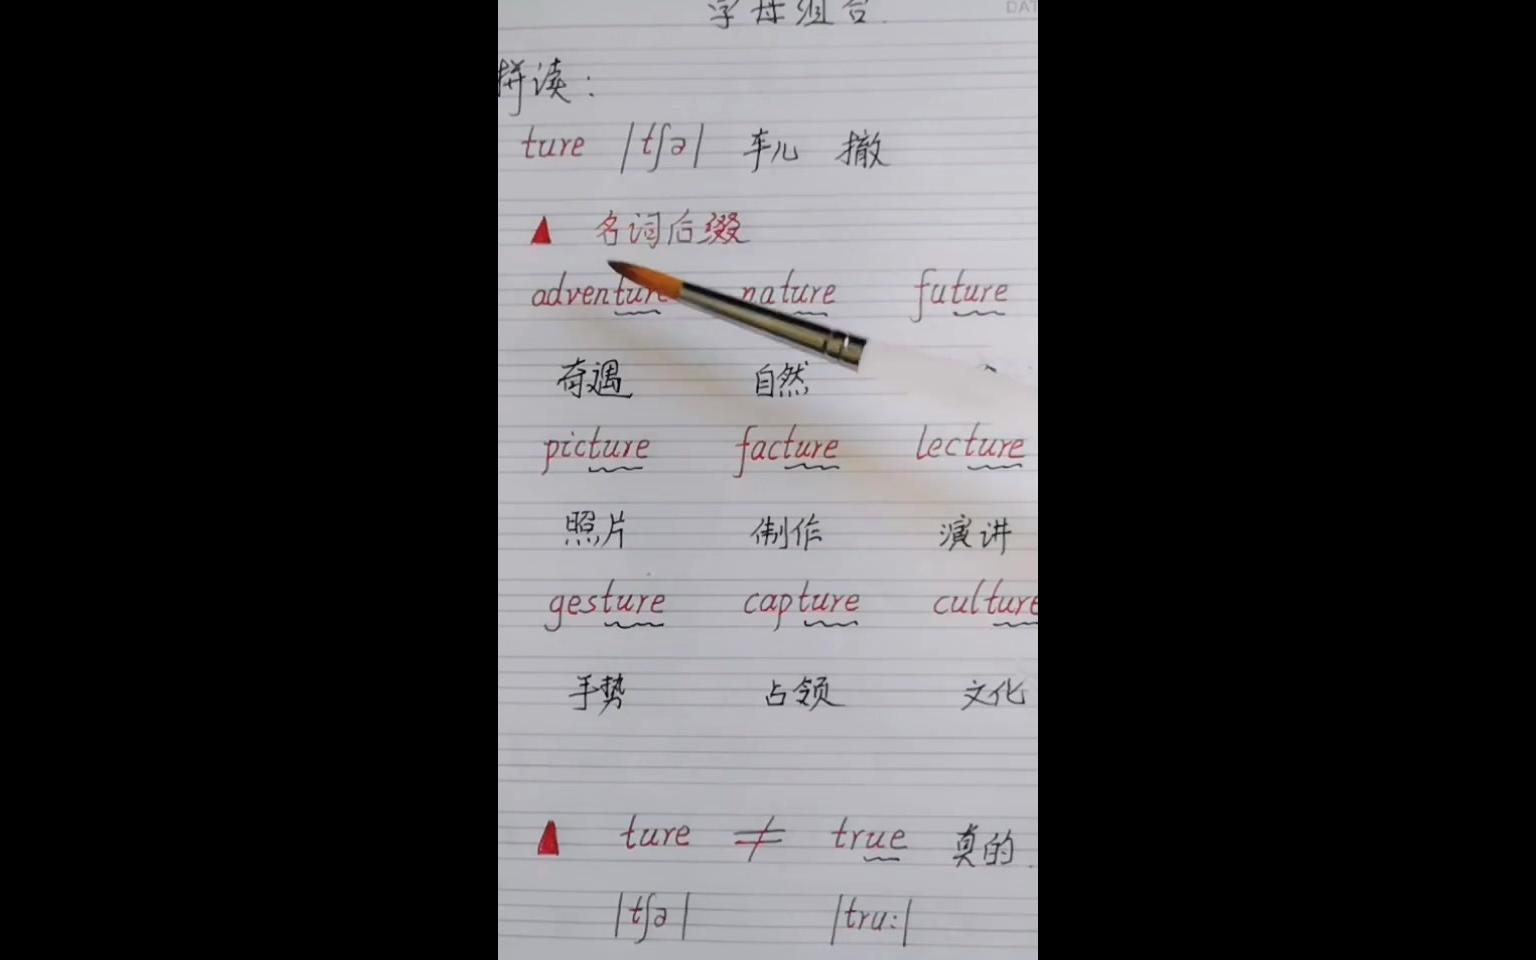 字母组合 DAT
拼读：
ture |tʃə| 车儿 撤
▲ 名词后缀
adventure nature future
奇遇 自然
picture facture lecture
照片 制作 演讲
gesture capture culture
手势 占领 文化
▲ ture ≠ true 真的.
|tʃə| |tru:|